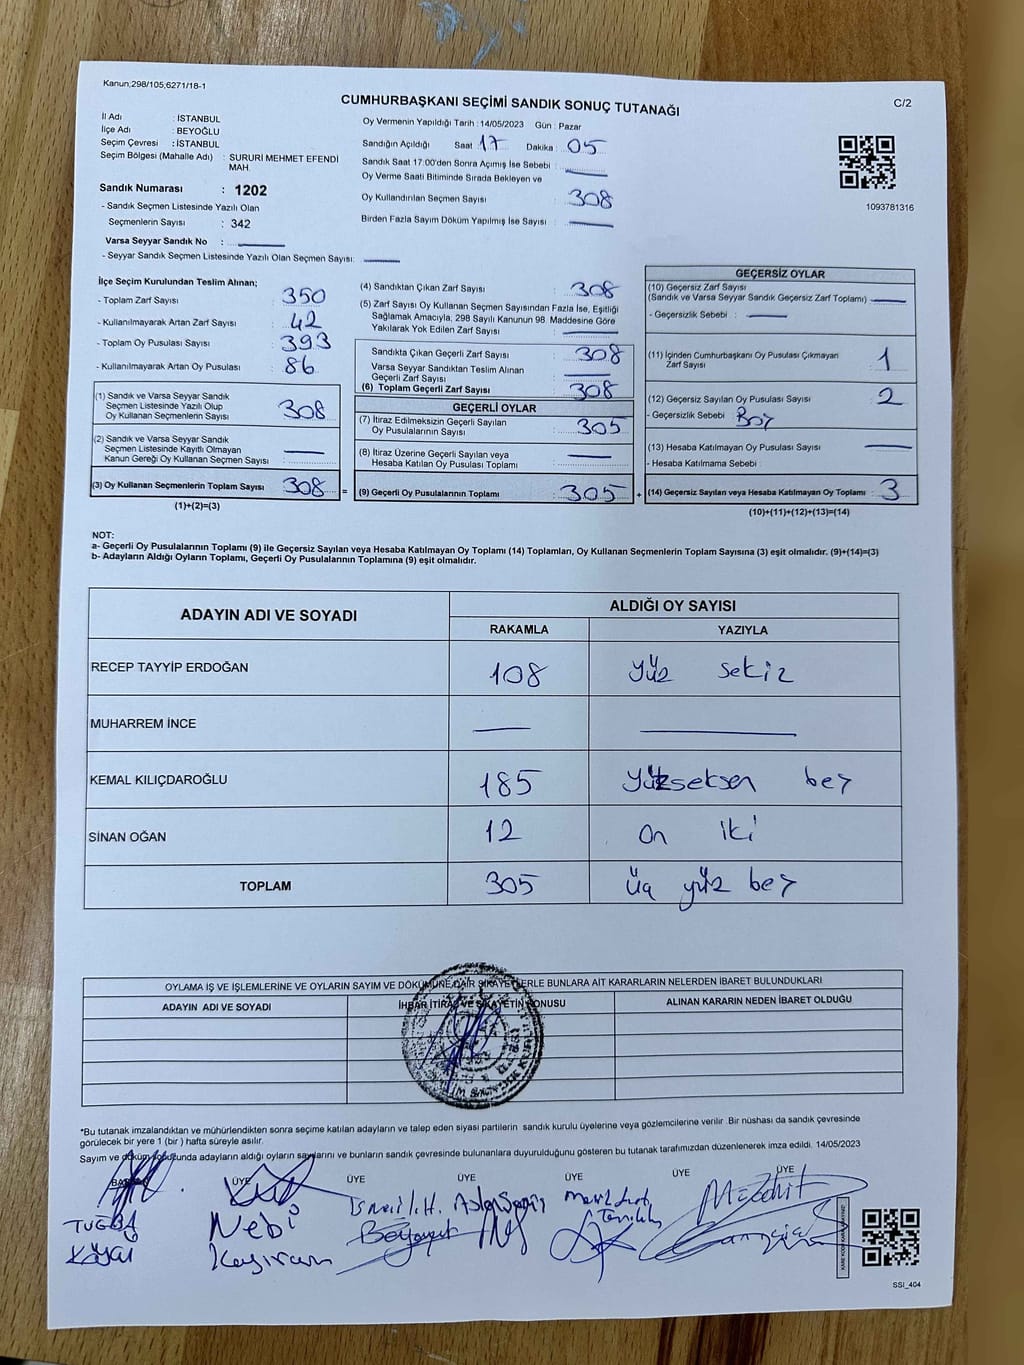 Kanun;298/105;6271/18-1
CUMHURBAŞKANI SEÇİMİ SANDIK SONUÇ TUTANAĞI
C/2
İl Adı : İSTANBUL
İlçe Adı : BEYOĞLU
Seçim Çevresi : İSTANBUL
Seçim Bölgesi (Mahalle Adı) : SURURİ MEHMET EFENDİ
MAH.
Sandık Numarası : 1202
- Sandık Seçmen Listesinde Yazılı Olan
Seçmenlerin Sayısı : 342
Varsa Seyyar Sandık No :
- Seyyar Sandık Seçmen Listesinde Yazılı Olan Seçmen Sayısı:
Oy Vermenin Yapıldığı Tarih : 14/05/2023 Gün : Pazar
Sandığın Açıldığı Saat 17 Dakika : 05
Sandık Saat 17:00'den Sonra Açımış İse Sebebi :
Oy Verme Saati Bitiminde Sırada Bekleyen ve
Oy Kullandırılan Seçmen Sayısı : 308
Birden Fazla Sayım Döküm Yapılmış İse Sayısı :
1093781316
İlçe Seçim Kurulundan Teslim Alınan;
- Toplam Zarf Sayısı : 350
- Kullanılmayarak Artan Zarf Sayısı : 42
- Toplam Oy Pusulası Sayısı : 393
- Kullanılmayarak Artan Oy Pusulası : 86
(1) Sandık ve Varsa Seyyar Sandık
Seçmen Listesinde Yazılı Olup
Oy Kullanan Seçmenlerin Sayısı : 308
(2) Sandık ve Varsa Seyyar Sandık
Seçmen Listesinde Kayıtlı Olmayan
Kanun Gereği Oy Kullanan Seçmen Sayısı :
(3) Oy Kullanan Seçmenlerin Toplam Sayısı : 308 =
(1)+(2)=(3)
(4) Sandıktan Çıkan Zarf Sayısı : 308
(5) Zarf Sayısı Oy Kullanan Seçmen Sayısından Fazla İse, Eşitliği
Sağlamak Amacıyla, 298 Sayılı Kanunun 98. Maddesine Göre
Yakılarak Yok Edilen Zarf Sayısı :
Sandıkta Çıkan Geçerli Zarf Sayısı : 308
Varsa Seyyar Sandıktan Teslim Alınan
Geçerli Zarf Sayısı :
(6) Toplam Geçerli Zarf Sayısı : 308
GEÇERLİ OYLAR
(7) İtiraz Edilmeksizin Geçerli Sayılan
Oy Pusulalarının Sayısı : 305
(8) İtiraz Üzerine Geçerli Sayılan veya
Hesaba Katılan Oy Pusulası Toplamı :
(9) Geçerli Oy Pusulalarının Toplamı : 305 +
GEÇERSİZ OYLAR
(10) Geçersiz Zarf Sayısı :
(Sandık ve Varsa Seyyar Sandık Geçersiz Zarf Toplamı)
- Geçersizlik Sebebi :
(11) İçinden Cumhurbaşkanı Oy Pusulası Çıkmayan
Zarf Sayısı : 1
(12) Geçersiz Sayılan Oy Pusulası Sayısı : 2
- Geçersizlik Sebebi Boş
(13) Hesaba Katılmayan Oy Pusulası Sayısı :
- Hesaba Katılmama Sebebi :
(14) Geçersiz Sayılan veya Hesaba Katılmayan Oy Toplamı : 3
(10)+(11)+(12)+(13)=(14)
NOT:
a- Geçerli Oy Pusulalarının Toplamı (9) ile Geçersiz Sayılan veya Hesaba Katılmayan Oy Toplamı (14) Toplamları, Oy Kullanan Seçmenlerin Toplam Sayısına (3) eşit olmalıdır. (9)+(14)=(3)
b- Adayların Aldığı Oyların Toplamı, Geçerli Oy Pusulalarının Toplamına (9) eşit olmalıdır.
ADAYIN ADI VE SOYADI
ALDIĞI OY SAYISI
RAKAMLA YAZIYLA
RECEP TAYYİP ERDOĞAN 108 Yüz sekiz
MUHARREM İNCE
KEMAL KILIÇDAROĞLU 185 Yüzseksen beş
SİNAN OĞAN 12 on iki
TOPLAM 305 üç yüz beş
OYLAMA İŞ VE İŞLEMLERİNE VE OYLARIN SAYIM VE DÖKÜMÜNE DAİR ŞİKAYETLERLE BUNLARA AİT KARARLARIN NELERDEN İBARET BULUNDUKLARI
ADAYIN ADI VE SOYADI İHBAR İTİRAZ VE ŞİKAYETİN KONUSU ALINAN KARARIN NEDEN İBARET OLDUĞU
*Bu tutanak imzalandıktan ve mühürlendikten sonra seçime katılan adayların ve talep eden siyasi partilerin sandık kurulu üyelerine veya gözlemcilerine verilir .Bir nüshası da sandık çevresinde
görülecek bir yere 1 (bir ) hafta süreyle asılır.
Sayım ve döküm sonucunda adayların aldığı oyların sayılarını ve bunların sandık çevresinde bulunanlara duyurulduğunu gösteren bu tutanak tarafımızdan düzenlenerek imza edildi. 14/05/2023
BAŞKAN ÜYE ÜYE ÜYE ÜYE ÜYE ÜYE
TUĞBA Nebi İsmail H.
SSİ_404